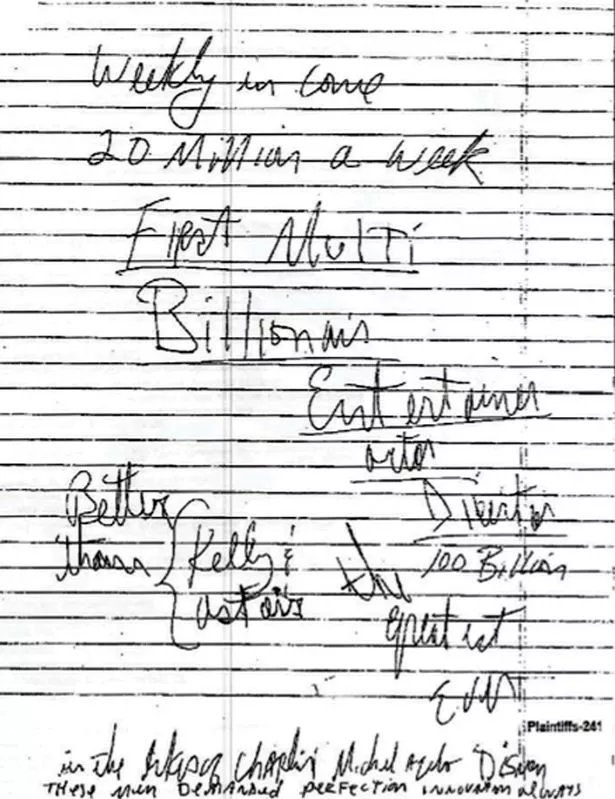 Weekly in come
20 Million a week
First Multi
Billionair
Entertainer
actor
Director
Better than { Kelly & astair
the greatest ever
100 Billion
Plaintiffs-241
in the Chaplin Michel Disney
These men Demanded perfection innovation always